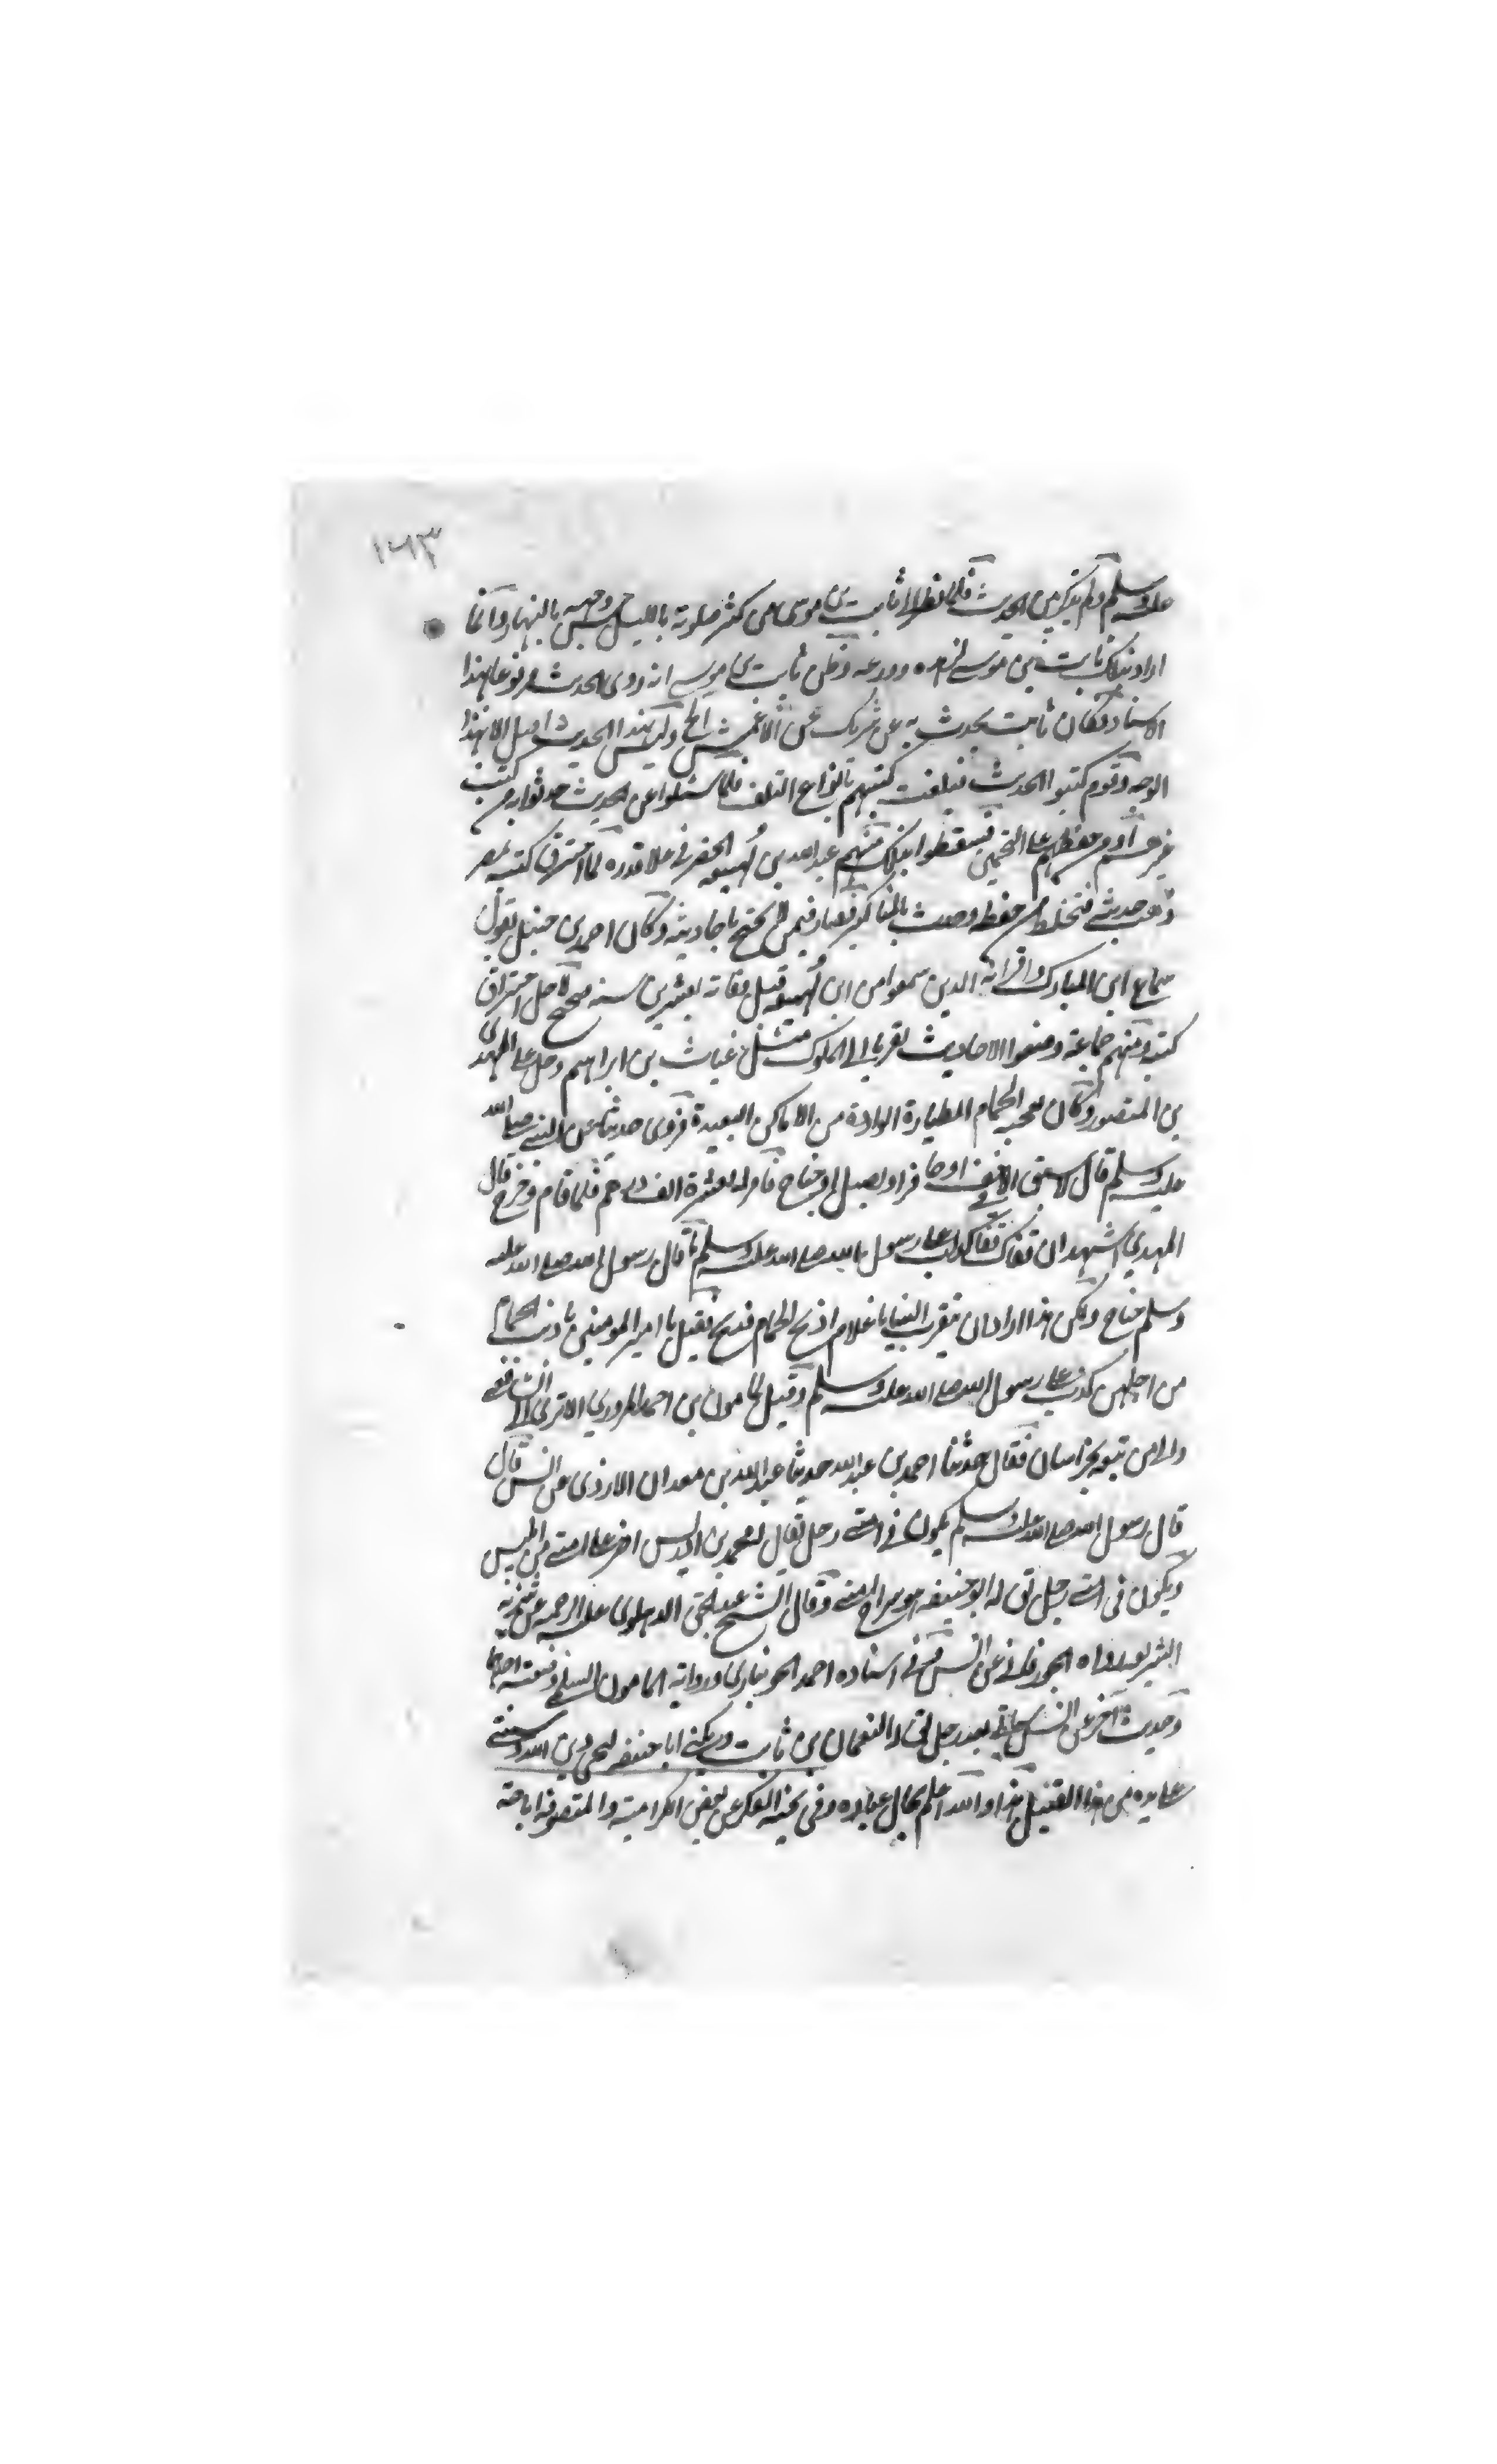 ١٦٣
عليه وسلم ولم يذكر متن الحديث فلما نظر الى ثابت بن موسى من كثر صلوته بالليل حسن وجهه بالنهار وانما
اراد بذلك ثابت بن موسى لزهده وورعه وظن ثابت بن موسى انه روى الحديث مرفوعا بهذا
الاسناد فكان ثابت يحدث به عن شريك عن الاعمش الخ وليس لهذا الحديث اصل الا بهذا
الوجه وقوم كتبوا الحديث فتلفت كتبهم بانواع التلف فلما سئلوا عن الحديث حدثوا به من كتب
غيرهم او من حفظهم على التخمين فسقطوا بذلك منهم عبد الله بن لهيعة الحضرمي علا قدره لما احترق كتبه بمصر
ذهب حديثه فتخلط من حفظه وحدث بالمناكير فصار فيمن لا يحتج باحاديثه وكان احمد بن حنبل يقول
سماع ابن المبارك واقرانه الذين سمعوا من ابن لهيعة قبل وفاته بعشرين سنة صحيح لاجل احتراق
كتبه ومنهم جماعة وضعوا الاحاديث تقربا الى الملوك مثل غياث بن ابراهيم دخل على المهدي
بن المنصور وكان يعجبه الحمام الطيارة الواردة من الاماكن البعيدة فروى حديثا عن النبي صلى الله
عليه وسلم قال لا سبق الا في خف او حافر او نصل او جناح فامر له بعشرة الف درهم فلما قام وخرج قال
المهدي اشهد ان قفاك قفا كذاب على رسول الله صلى الله عليه وسلم ما قال رسول الله صلى الله عليه
وسلم جناح ولكن هذا اراد ان يتقرب الينا يا غلام اذبح الحمام فذبح فقيل يا امير المومنين ما ذنب الحمام
من اجلهن كذب على رسول الله صلى الله عليه وسلم وقيل لمامون بن احمد المروزي الا ترى الى الشافعي
والى من تبعه بخراسان فقال حدثنا احمد بن عبد الله حدثنا عبد الله بن معدان الازدى عن انس قال
قال رسول الله صلى الله عليه وسلم يكون في امتي رجل يقال له محمد بن ادريس اضر على امتي من ابليس
ويكون في امتي رجل يق له ابو حنيفة هو سراج امتي وقال الشيخ عبد الحق الدهلوى عليه الرحمة عن تنزيه
الشريعة رواه الجوزقاني عن انس وفي اسناده احمد الجوئبارى ورواية المامون السلمي وضعه احدهما
وحديث آخر عن انس سياتي بعد رجل يق له النعمان بن ثابت ويكنى ابا حنيفة ليحيى دين الله وسنتي
على يده من هذا القبيل هذا والله اعلم بحال عباده وفي نخبة الفكر عن بعض الكرامية والمتصوفة اباحة